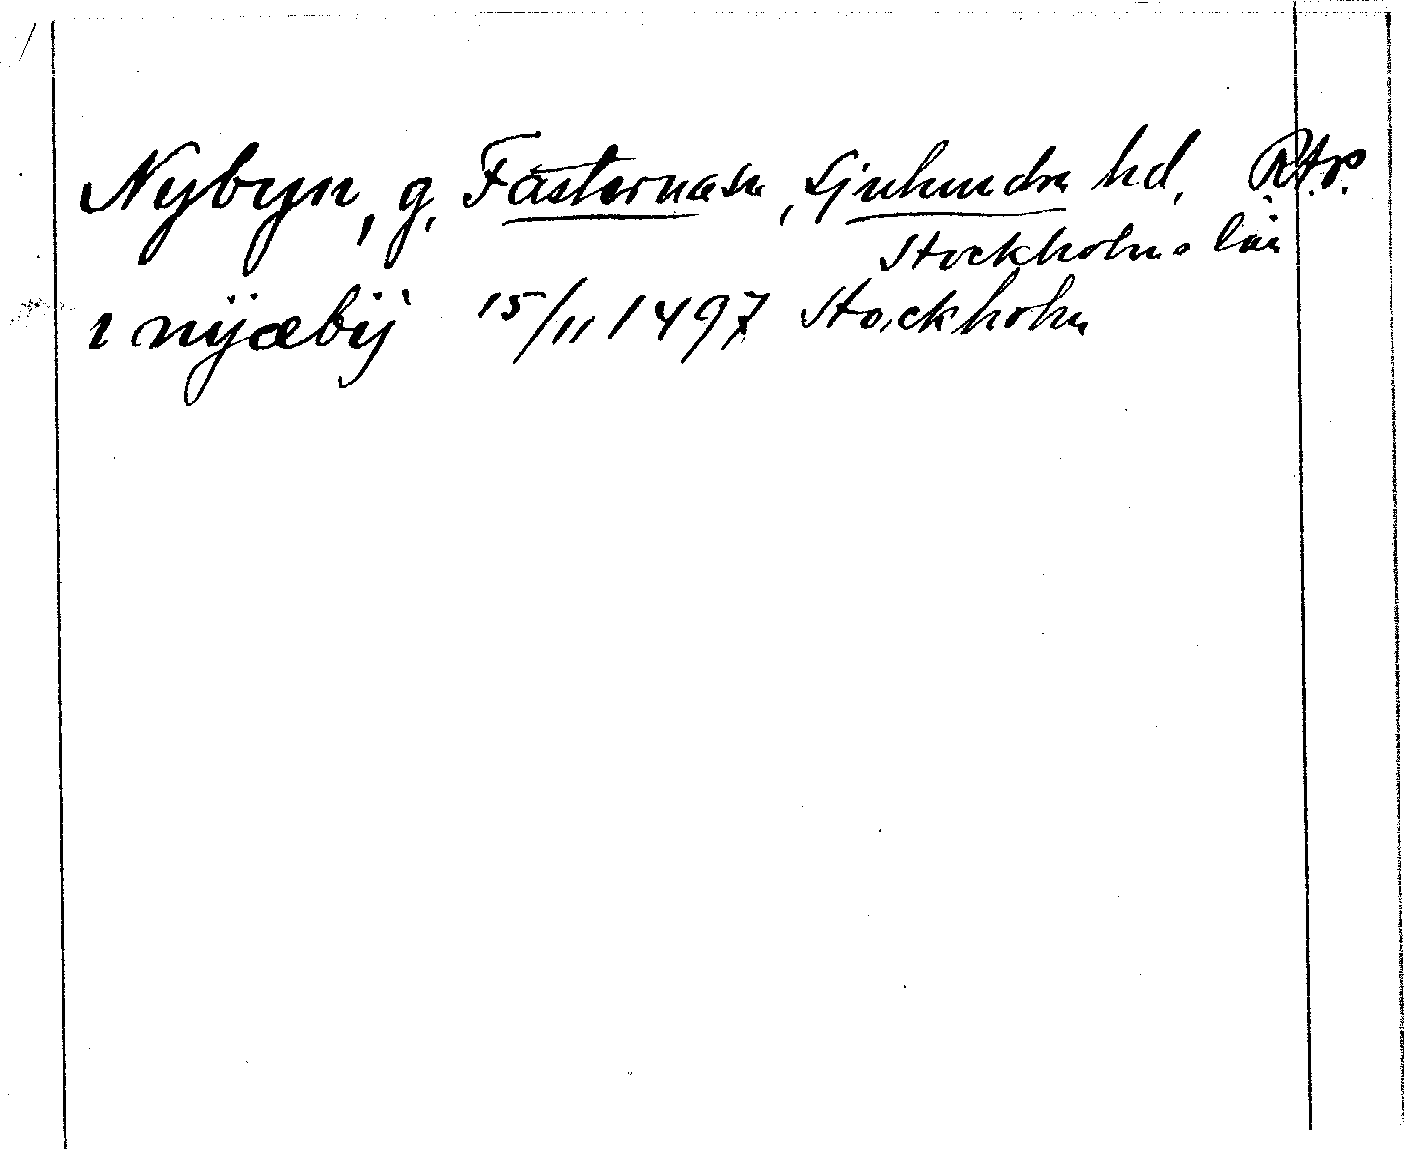 Nybyn, g, Fasterna sn, Sjuhundra hd, RAp.
Stockholms län
i nÿæbÿ 15/11 1497 Stockholm